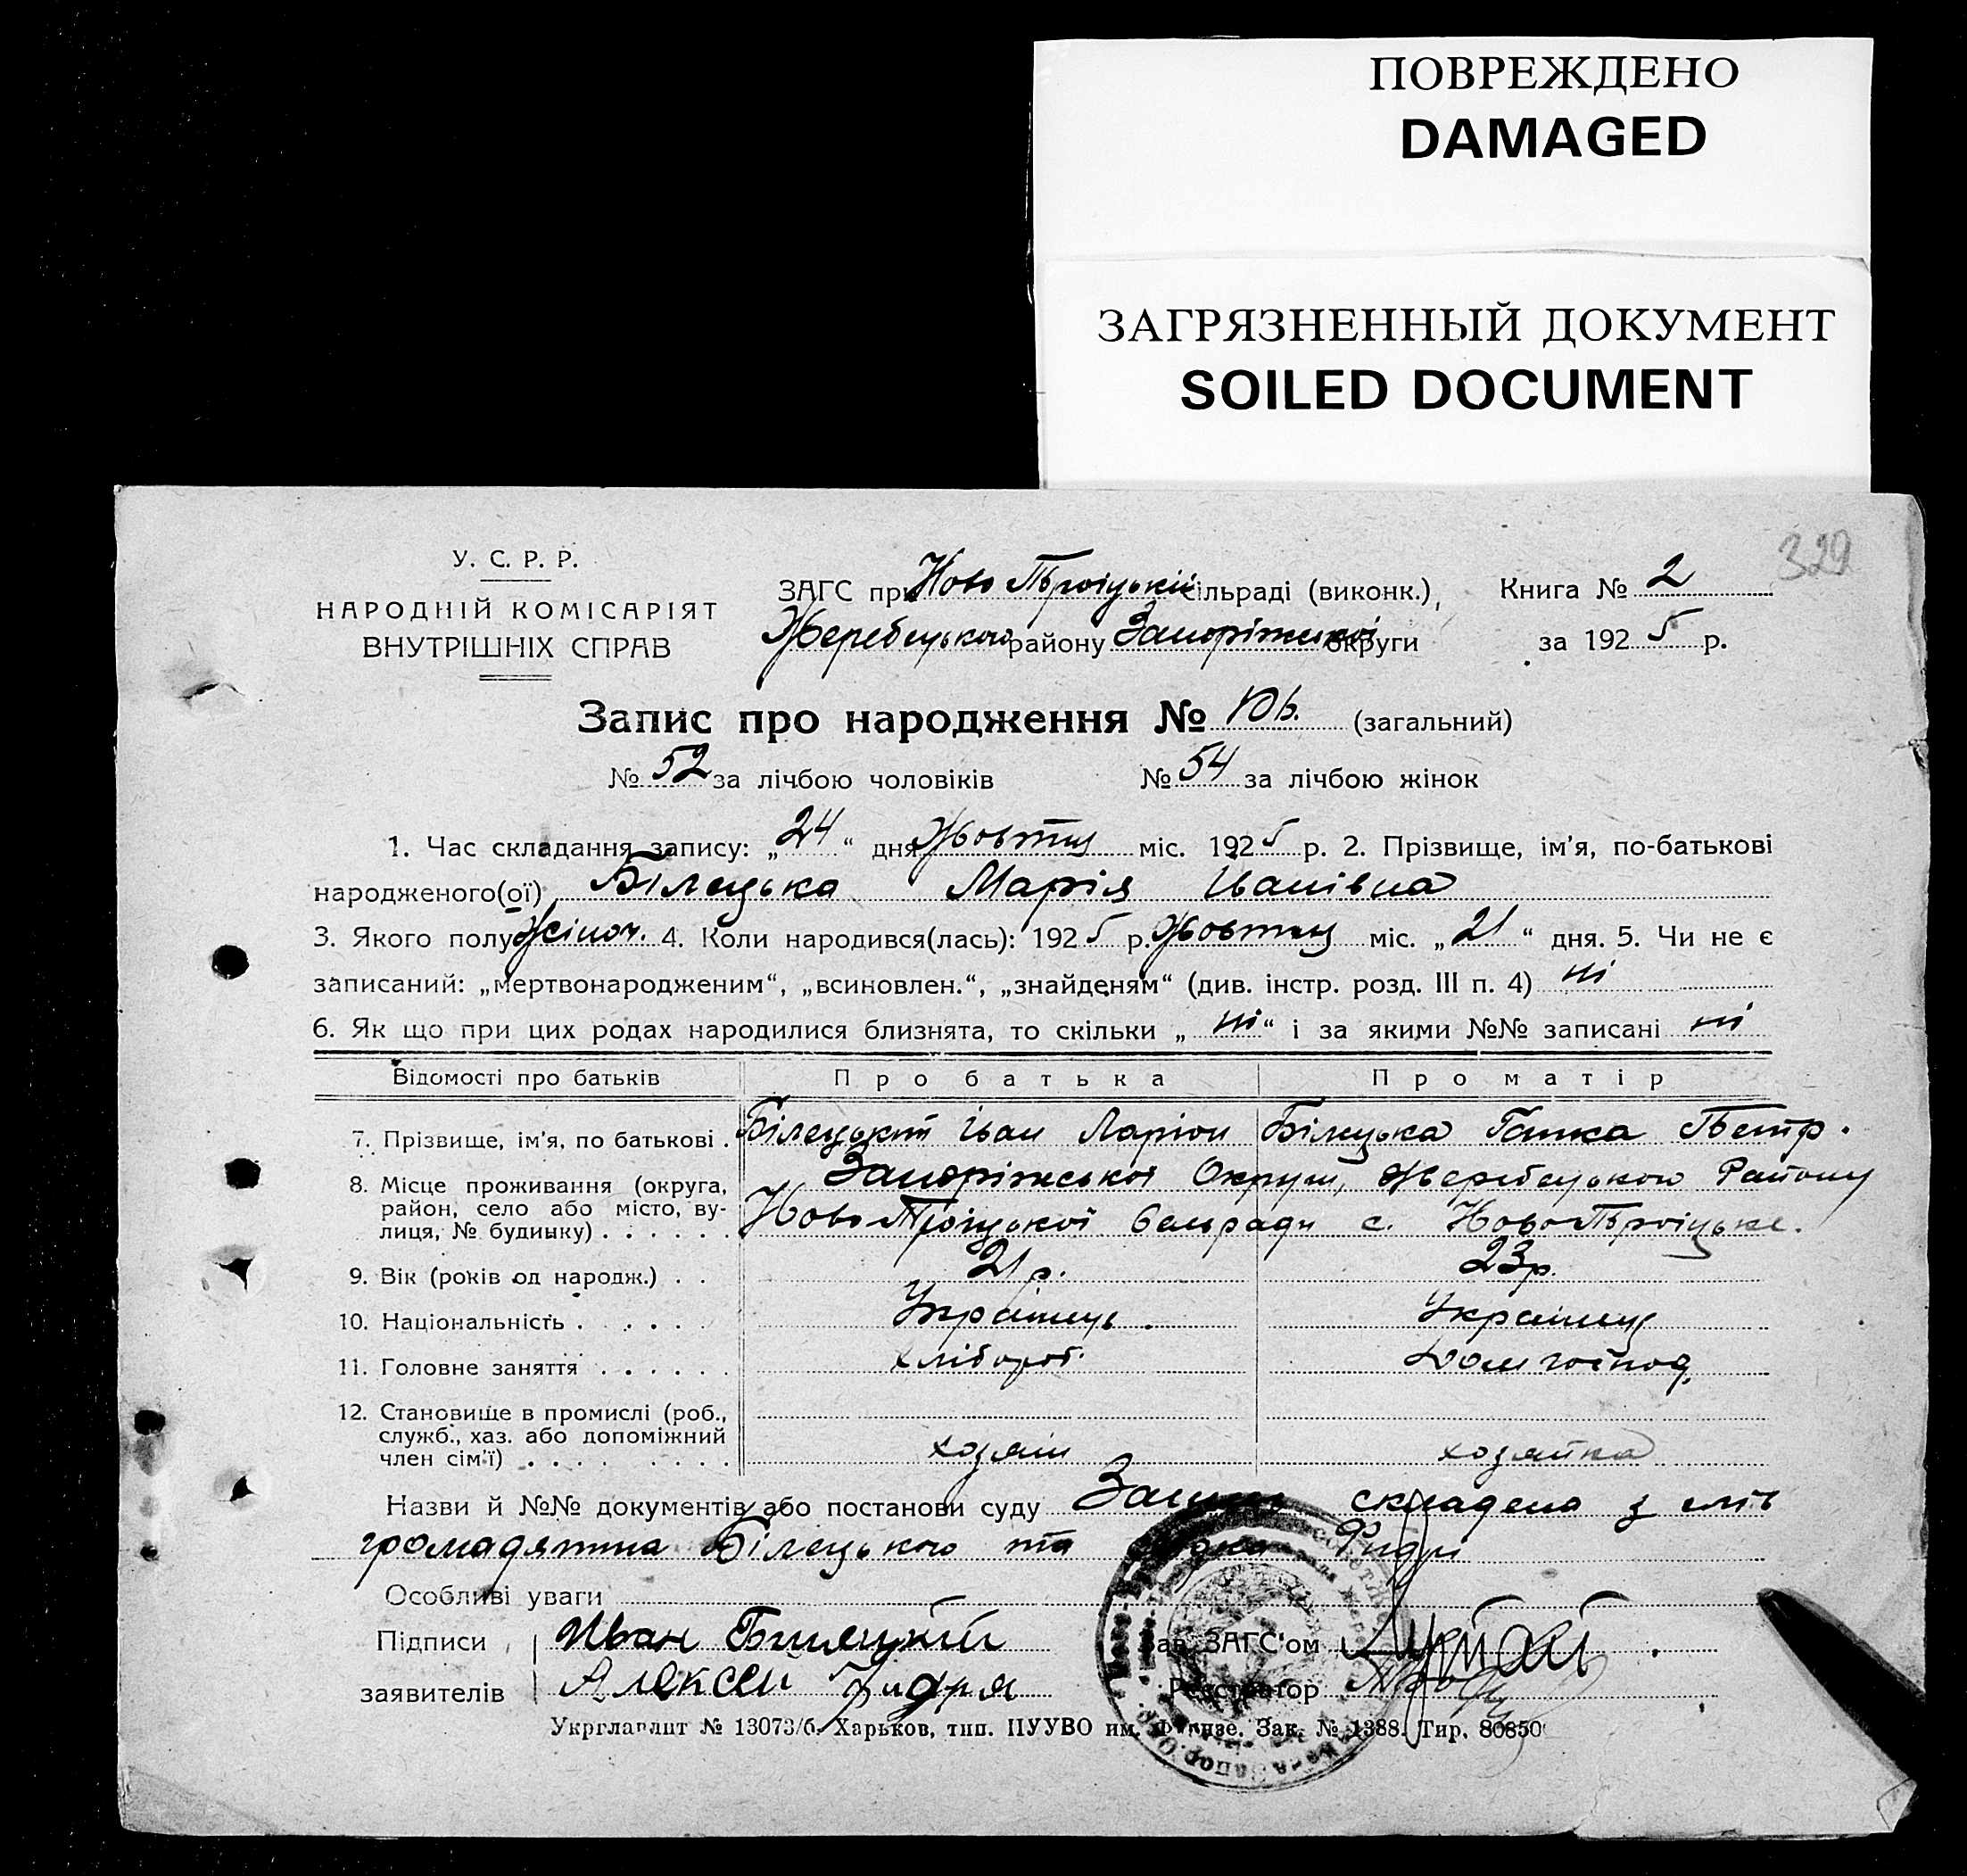 ПОВРЕЖДЕНО
DAMAGED
ЗАГРЯЗНЕННЫЙ ДОКУМЕНТ
SOILED DOCUMENT
329
У. С. Р. Р.
НАРОДНІЙ КОМІСАРІЯТ
ВНУТРІШНІХ СПРАВ
ЗАГС при Ново Троіцькій сільраді (виконк.), Книга № 2
Жеребецького району Запоріжської округи за 1925 р.
Запис про народження № 106. (загальний)
№ 52 за лічбою чоловіків № 54 за лічбою жінок
1. Час складання запису: „24“ дня Жовтня міс. 1925 р. 2. Прізвище, ім'я, по-батькові
народженого(ої) Білецька Марія Іванівна
3. Якого полу Жіноч. 4. Коли народився(лась): 1925 р. Жовтня міс. „21“ дня. 5. Чи не є
записаний: „мертвонародженим“, „всиновлен.“, „знайденям“ (див. інстр. розд. III п. 4) ні
6. Як що при цих родах народилися близнята, то скільки „ні“ і за якими №№ записані ні
Відомості про батьків Про батька Про матір
7. Прізвище, ім'я, по батькові . Білецький Іван Ларіон Білецька Ганка Петр.
8. Місце проживання (округа, Запоріжської Округи, Жеребецького Району
район, село або місто, ву-
лиця, № будинку) . . . . . . Ново Троіцької Сельради с. Ново Троіцьке.
9. Вік (років од народж.) . . 21 р. 23 р.
10. Національність . . . . . Украінець . Украінец
11. Головне заняття . . . . . . хлібороб. Дом господ.
12. Становище в промислі (роб.,
служб., хаз. або допоміжний
член сім'ї) . . . . . . . . хозяін хозяйка
Назви й №№ документів або постанови суду складена з слів
громадянина Білецького та
Особливі уваги
Підписи Иван Билецкий Зав. ЗАГС'ом
заявителів Алексей Гидря Реєстратор
Укрглавлит № 13073/б. Харьков, тип. ПУУВО им. Фрунзе. Зак. № 1388. Тир. 80850